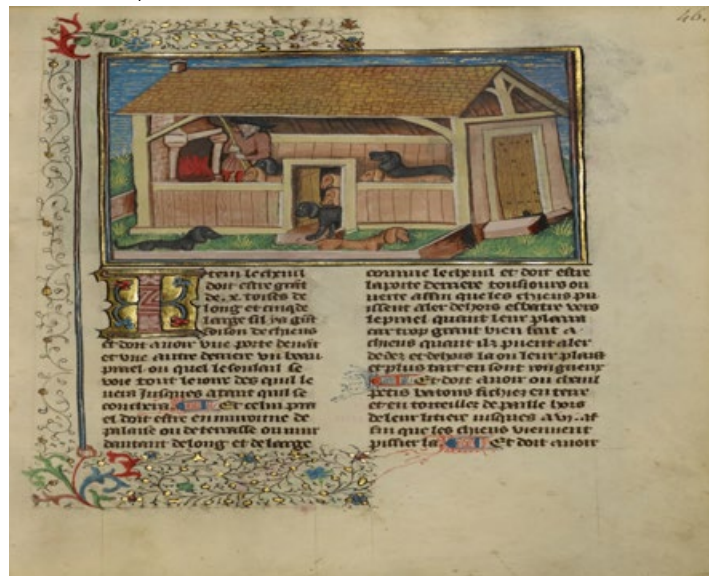 46.
Item le chenil
doit estre grãt
de .x. toises de
long et cinq de
large sil y a grãt
foison de chiens
et doit auoir vne porte deuãt
et vne autre derriere vn beau
prael ou quel le soulail se
voie tout le iour des quil le
uera jusques atant quil se
couchera Et celui pra
el doit estre en muronne de
palaiz ou de terrasse ou mur
dautant de long et de large
comme le chenil et doit estre
la porte derriere tousiours ou
uerte affin que les chiens pu
issent aler dehors esbatre vers
le prael quant leur plaira
car trop grant bien fait a
chiens quant ilz puent aler
dedez et dehors la ou leur plaist
et plus tart en sont rongneux
Et doit auoir ou chenil
petis bastons fichiez en terre
et en torteillez de paille hors
de leur litiere jusques a VI. af
fin que les chiens viennent
pissier la Et doit auoir